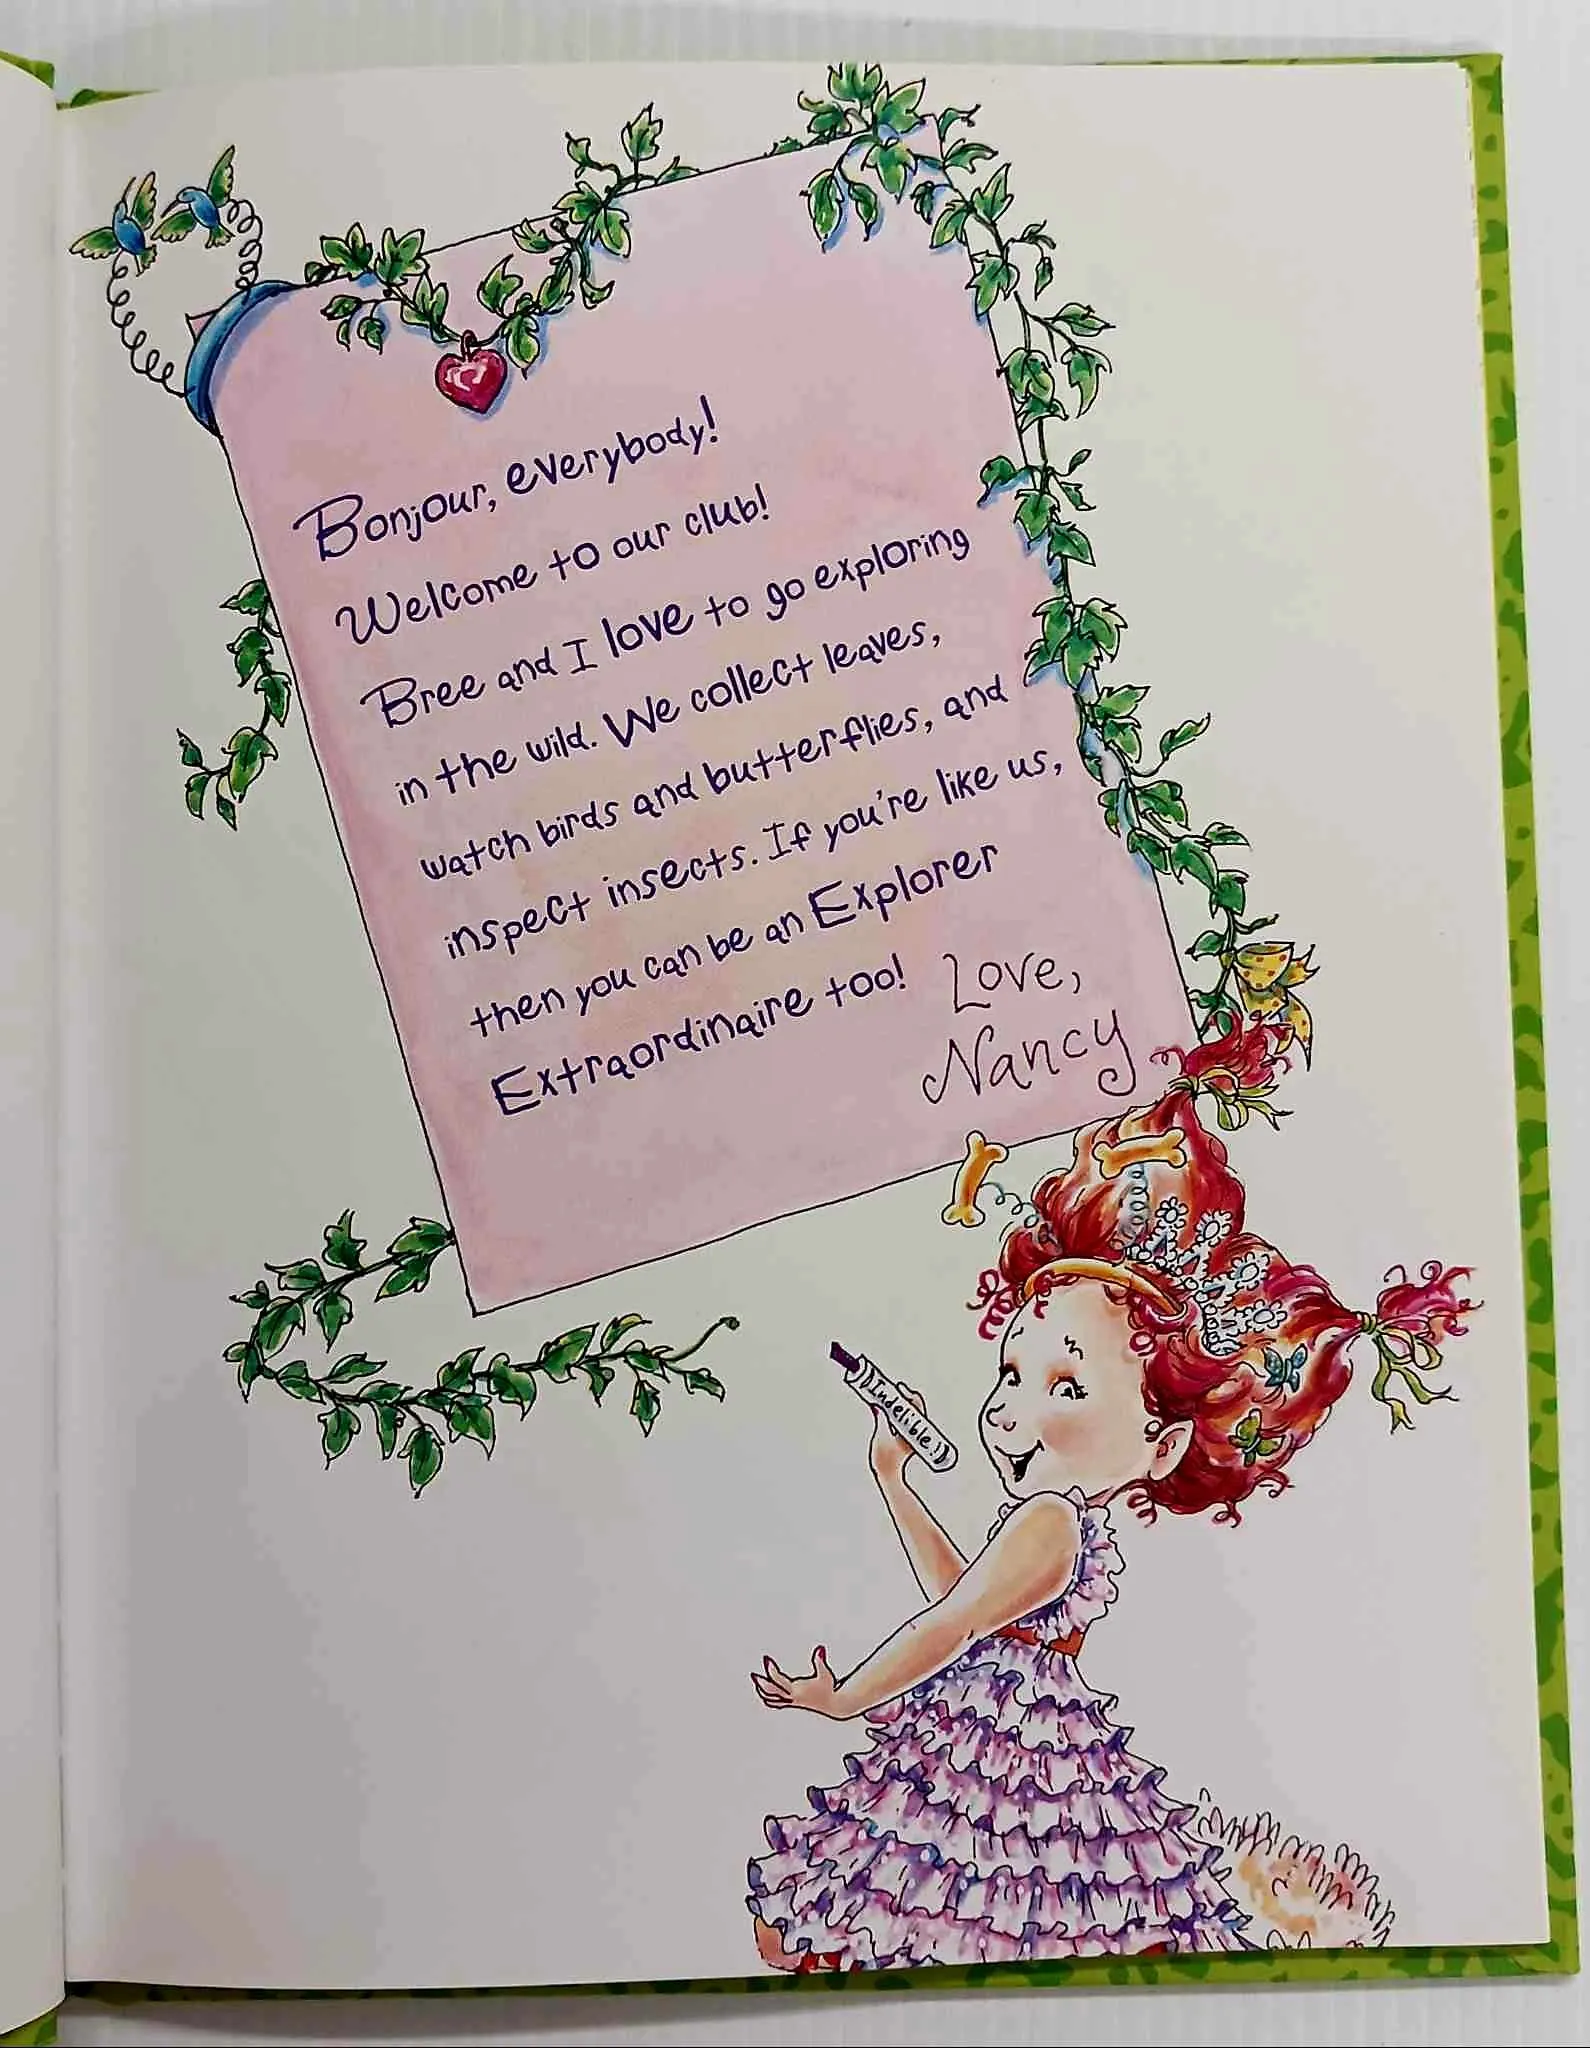 Bonjour, everybody!
Welcome to our club!
Bree and I love to go exploring
in the wild. We collect leaves,
watch birds and butterflies, and
inspect insects. If you're like us,
then you can be an Explorer
Extraordinaire too!
Love,
Nancy
Indelible!